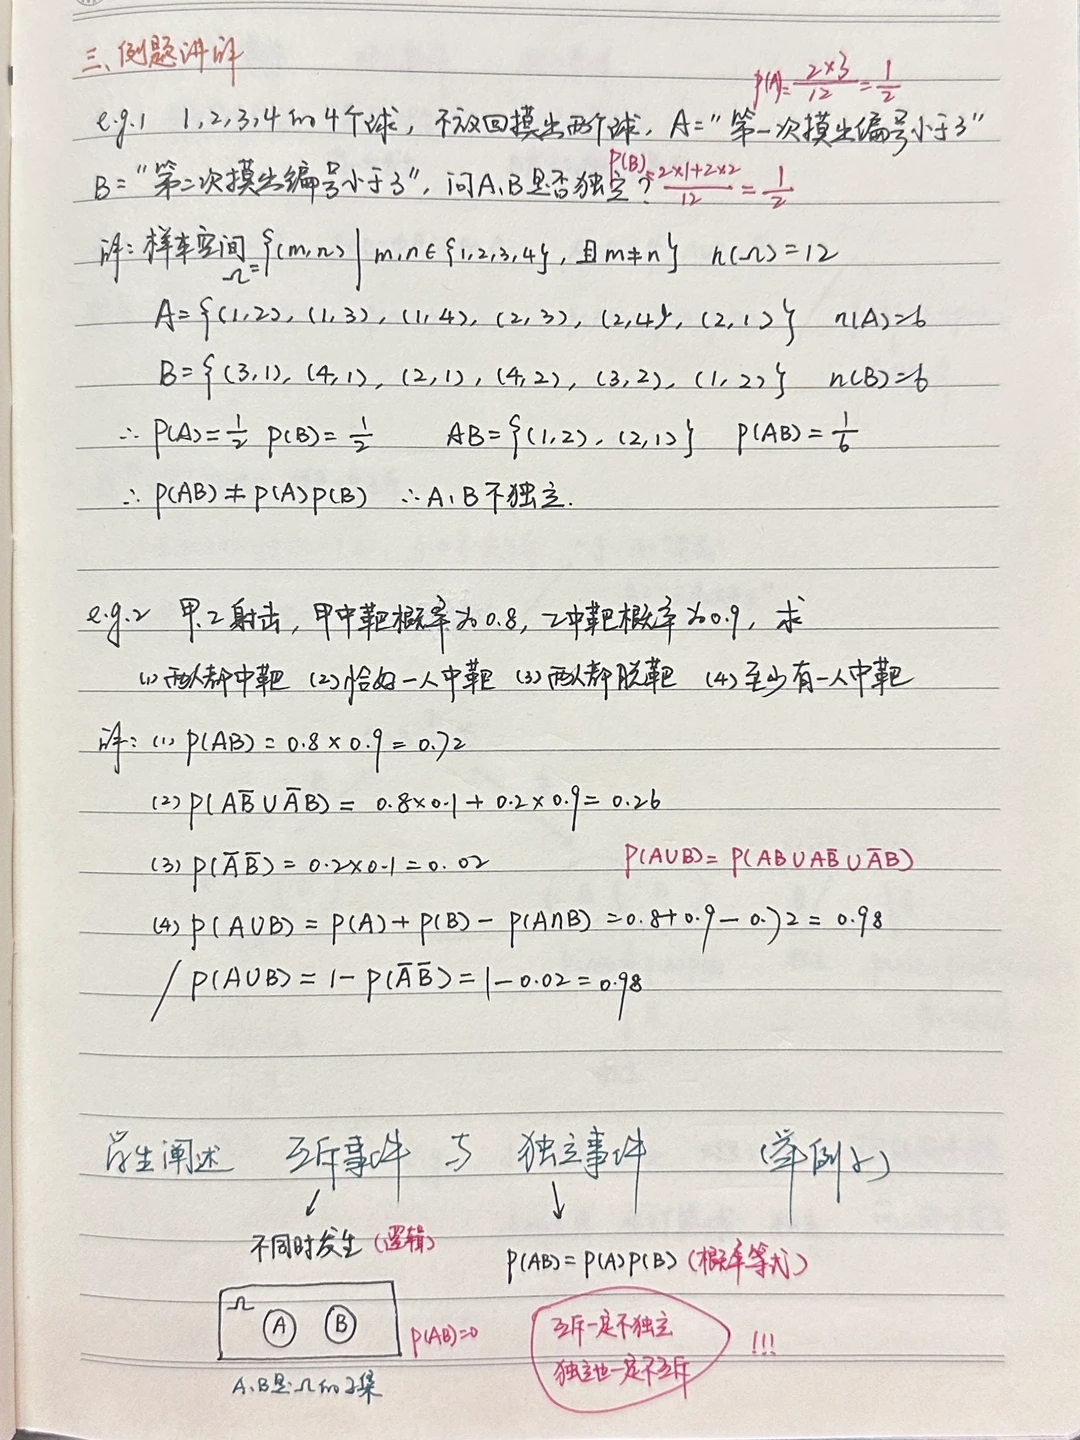 三、例题讲解
P(A)=2×3/12=1/2
e.g.1 1,2,3,4的4个球,不放回摸出两个球,A="第一次摸出编号小于3"
B="第二次摸出编号小于3",问A、B是否独立?
P(B)=2×1+2×2/12=1/2
解:样本空间Ω={(m,n)|m,n∈{1,2,3,4},且m≠n} n(Ω)=12
A={(1,2),(1,3),(1,4),(2,3),(2,4),(2,1)} n(A)=6
B={(3,1),(4,1),(2,1),(4,2),(3,2),(1,2)} n(B)=6
∴P(A)=1/2 P(B)=1/2 AB={(1,2),(2,1)} P(AB)=1/6
∴P(AB)≠P(A)P(B) ∴A、B不独立.
e.g.2 甲.乙射击,甲中靶概率为0.8,乙中靶概率为0.9,求
(1)两人都中靶 (2)恰好一人中靶 (3)两人都脱靶 (4)至少有一人中靶
解:(1)P(AB)=0.8×0.9=0.72
(2)P(AB̅∪A̅B)=0.8×0.1+0.2×0.9=0.26
(3)P(A̅B̅)=0.2×0.1=0.02 P(A∪B)=P(AB∪AB̅∪A̅B)
(4)P(A∪B)=P(A)+P(B)-P(A∩B)=0.8+0.9-0.72=0.98
/P(A∪B)=1-P(A̅B̅)=1-0.02=0.98
学生阐述 互斥事件 与 独立事件 (举例子)
不同时发生(逻辑)
P(AB)=P(A)P(B)(概率等式)
Ω A B P(AB)=0
互斥一定不独立
独立也一定不互斥
!!!
A、B是Ω的子集